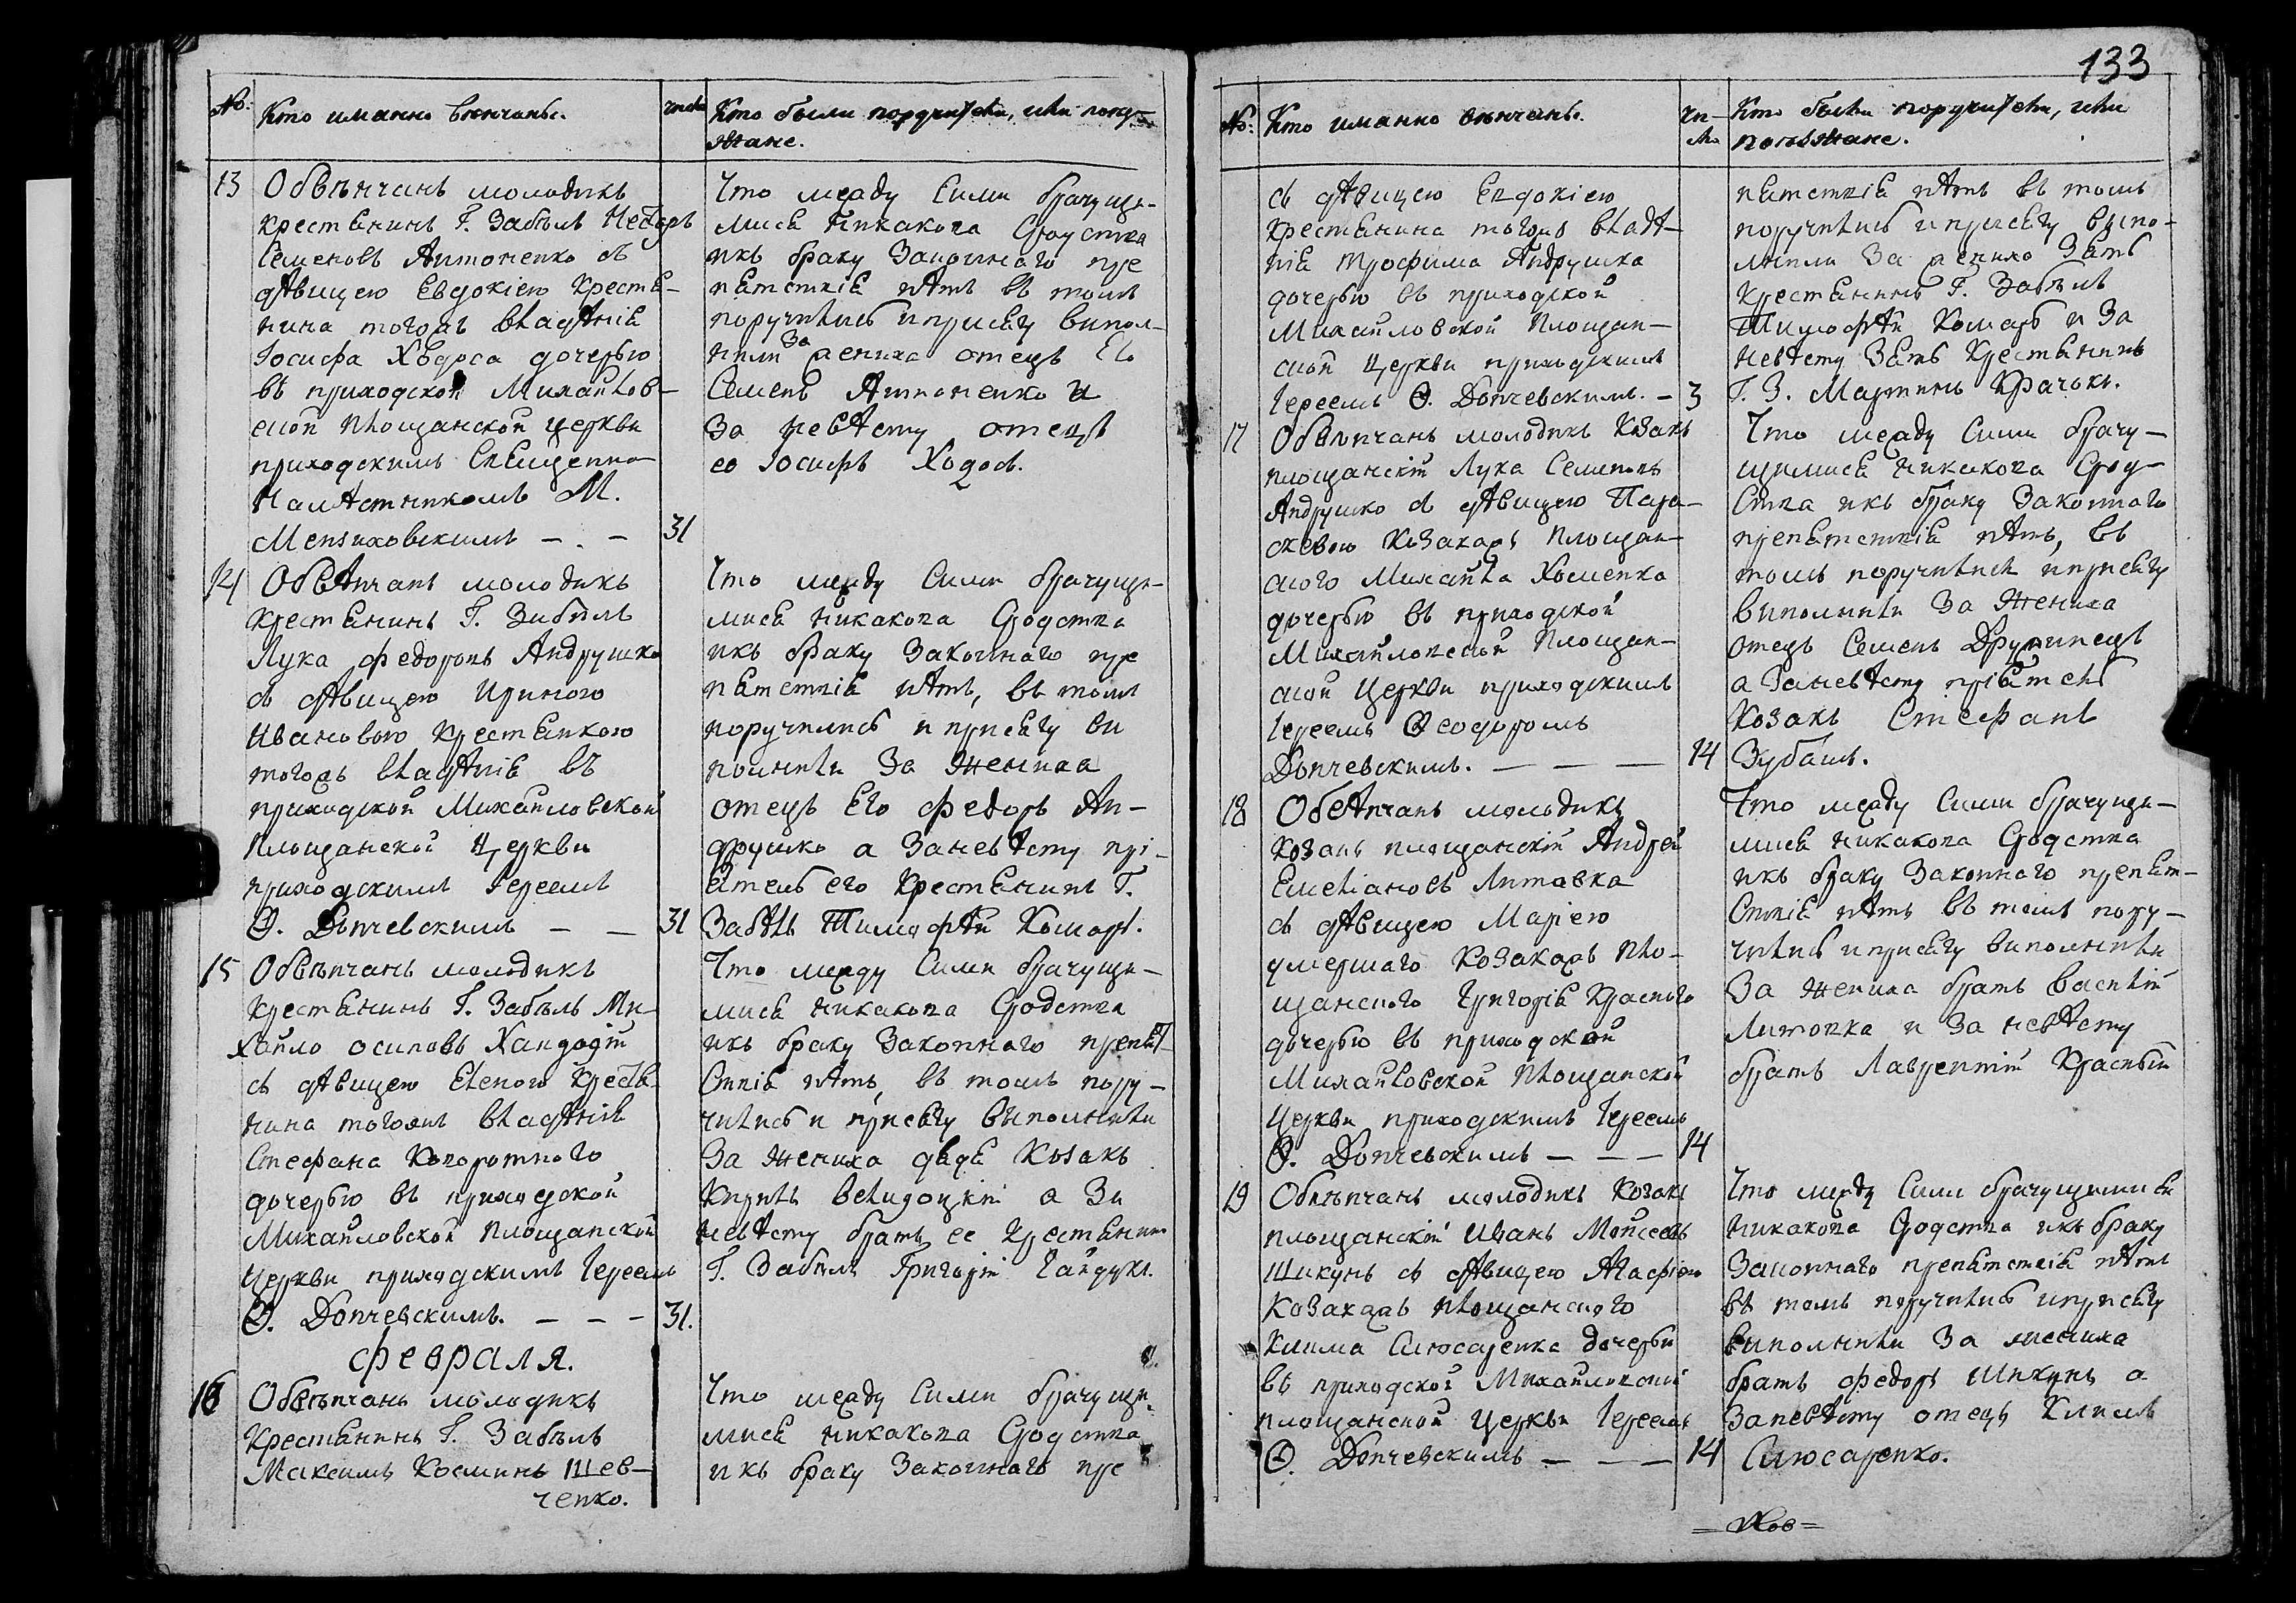 133
No:
Кто иманно венчанъ.
число
Кто были поручители, или поезжане.
13
Обвѣнчанъ молодикъ
крестянинъ Г. Забѣлъ
Семеновъ Антоненко съ
дѣвицею Евдокіею крестя-
нина тогожъ владѣнія
Іосифа Ходоса дочерью
въ приходской Михайлов-
ской площанской церкви
приходскимъ Священно-
намѣстникомъ М.
Мензиховскимъ — . —
31
Что между Сими брачущи-
мися никакова Сродства
икъ браку Законнаго пре
пятствія нѣтъ въ томъ
поручились иприсягу випол-
нили За жениха отецъ Его
Семенъ Антоненко и
За невѣсту отецъ
ео Іосифъ Ходос.
14
Обвѣнчанъ молодикъ
крестянинъ Г. Забѣлъ
Лука федоровъ Андрушко
съ дѣвицею Ириною
Ивановою крестянкою
тогожъ владѣнія въ
приходской Михайловской
Площанской Церкви
приходскимъ Іереемъ
Ѳ. Дончевскимъ — —
31
Что между Сими брачущи-
мися никакова Сродства
икъ браку Законнаго пре
пятствія нѣтъ, въ томъ
поручились и присягу ви
полнили За жениха
отецъ Его федоръ Ан-
друшко а Заневѣсту прі-
ятель его крестянинъ Г.
Забѣлъ Тимофѣй Комаръ.
15
Обвѣнчанъ молодикъ
крестянинъ Г. Забѣлъ Ми-
хайло осиповъ Хандодій
съ дѣвицею Еленою крестя
нина тогожъ владѣнія
Стефана Коротного
дочерью въ приходской
Михайловской площанской
Церкви приходскимъ Іереемъ
Ѳ. Дончевскимъ. — — —
31.
Что между Сими брачущи-
мися никакова Сродства
икъ браку Законнаго препят-
ствія нѣтъ, въ томъ пору-
чились и присягу выполнили
За жениха дядя Козакъ
Кирилъ Велидоцкій а За
невѣсту братъ ее крестянинъ
Г. Забѣлъ Григорій Гайдукъ.
февраля.
16
Обвѣнчанъ молодикъ
крестянинъ Г. Забѣлъ
Максимъ Косминъ Шев-
ченко.
Что между Сими брачущи-
мися никакова Сродства
икъ браку Законнаго пре
No:
Кто иманно венчанъ.
чи-
сло
Кто были поручители, или
поезжане.
съ дѣвицею Евдокіею
крестянина тогожъ владѣ-
нія Трофима Андрушка
дочерью въ приходской
Михайловской Площан-
ской церкви приходскимъ
Іереемъ Ѳ. Дончевскимъ. —
3
пятствія нѣтъ въ томъ
поручились иприсягу выпо-
лнили За жениха Зять
крестянинъ Г. Забѣлъ
Тимофѣй Комаръ и За
невѣсту Зять крестянинъ
Г. З. Мартинъ Крачокъ.
17
Обвѣнчанъ молодикъ Козакъ
площанскій Лука Семеновъ
Андрушко съ дѣвицею Пара-
скевою Козакажъ Площан-
ского Михайла Хоменка
дочерью въ приходской
Михайловской Площан-
ской Церкви приходскимъ
Іереемъ Ѳеодоромъ
Дончевскимъ. — — —
14
Что между Сими брачу-
щимися никакова Срод-
ства икъ браку Законнаго
препятствія нѣтъ, въ
томъ поручились иприсягу
виполнили За жениха
отецъ Семенъ
а Заневѣсту пріятель
Козакъ Стефанъ
Зубань.
18
Обвѣнчанъ молодикъ
козакъ площанскій Андрей
Емеліановъ Литовка
съ дѣвицею Маріею
умершаго Козакажъ пло-
щанского Григорія Красного
дочерью въ приходской
Михайловской площанской
Церкви приходскимъ Іереемъ
Ѳ. Дончевскимъ — — —
14
Что между Сими брачущи-
мися никакова Сродства
икъ браку Законнаго препят-
ствія нѣтъ въ томъ пору-
чились иприсягу виполнили
За жениха братъ василій
Литовка и За невѣсту
братъ Лаврентій Красный
19
Обвѣнчанъ молодикъ Козакъ
площанскій Иванъ Мойсеевъ
Шикунъ съ дѣвицею Агафіею
Козакажъ площанского
Клима Слюсаренка дочерью
въ приходской Михайловской
площанской церкви Іереемъ
Ѳ. Дончевскимъ — — —
14
Что между Сими брачущимися
никакова Сродства икъ браку
Законнаго препятствія нѣтъ
въ томъ поручились иприсягу
виполнили За жениха
братъ федоръ Шикунъ а
Заневѣсту отецъ Климъ
Слюсаренко.